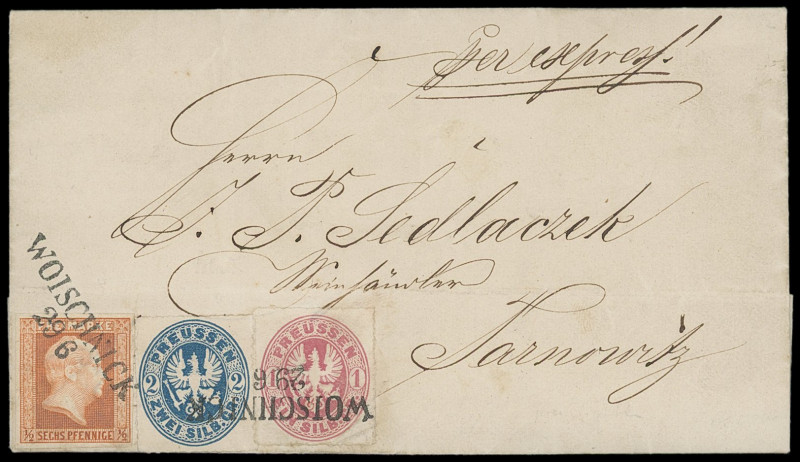 per express!
Herrn
J. P. Sedlaczek
Weinhändler
Tarnowitz
WOISCHNICK
29 6
½ SECHS PFENNIGE ½
PREUSSEN
2 2
ZWEI SILB. GR.
PREUSSEN
1 1
EIN SILB. GR.
WOISCHNICK
29 6